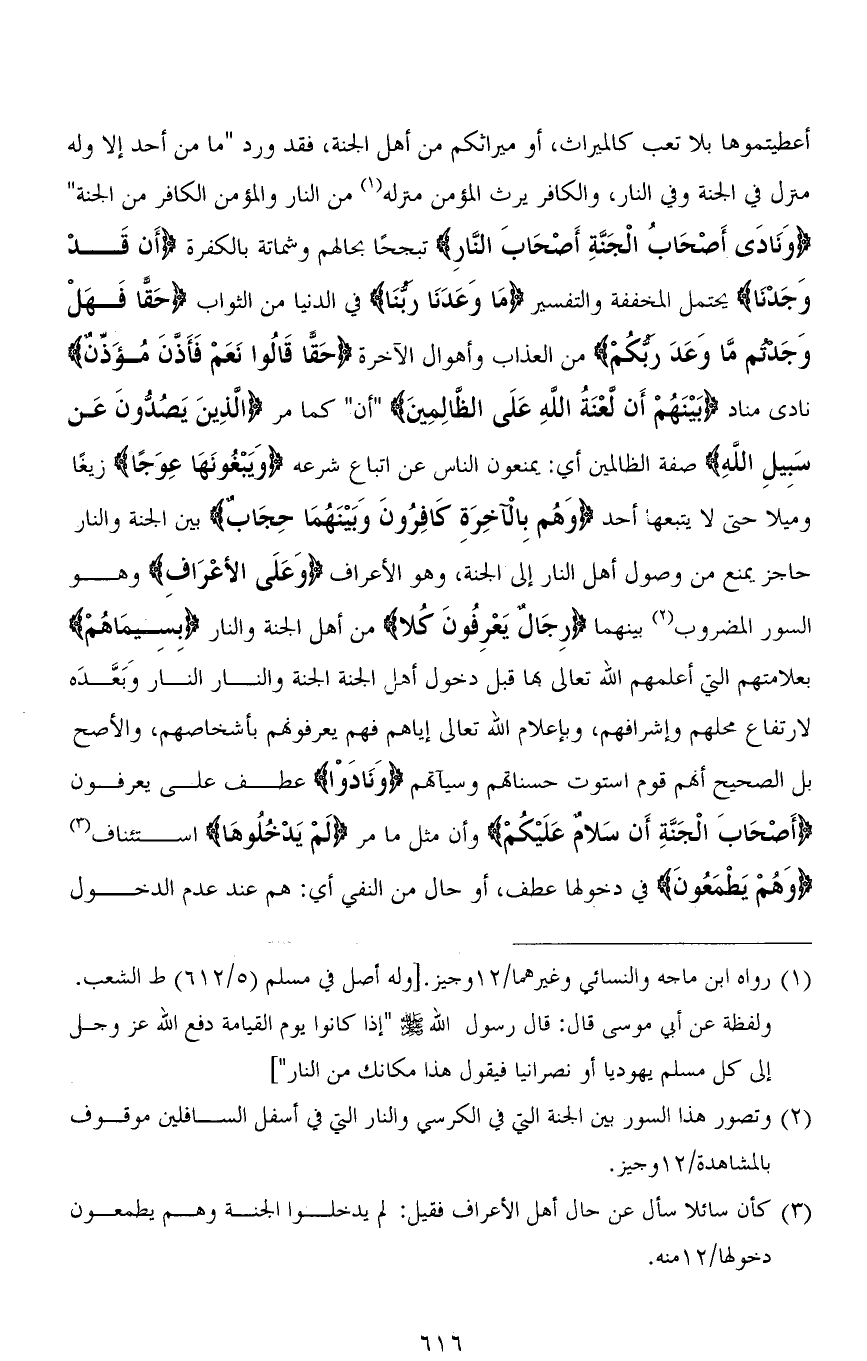 أعطيتموها بلا تعب كالميراث، أو ميراثكم من أهل الجنة، فقد ورد "ما من أحد إلا وله
منزل في الجنة وفي النار، والكافر يرث المؤمن منزله(١) من النار والمؤمن الكافر من الجنة"
﴿وَنَادَى أَصْحَابُ الْجَنَّةِ أَصْحَابَ النَّارِ﴾ تبجحًا بحالهم وشماتة بالكفرة ﴿أَن قَـــدْ
وَجَدْنَا﴾ يحتمل المخففة والتفسير ﴿مَا وَعَدَنَا رَبُّنَا﴾ في الدنيا من الثواب ﴿حَقًّا فَــهَلْ
وَجَدْتُم مَّا وَعَدَ رَبُّكُمْ﴾ من العذاب وأهوال الآخرة ﴿حَقًّا قَالُوا نَعَمْ فَأَذَّنَ مُــؤَذِّنٌ﴾
نادى مناد ﴿بَيْنَهُمْ أَن لَّعْنَةُ اللَّهِ عَلَى الظَّالِمِينَ﴾ "أن" كما مر ﴿الَّذِينَ يَصُدُّونَ عَـن
سَبِيلِ اللَّهِ﴾ صفة الظالمين أي: يمنعون الناس عن اتباع شرعه ﴿وَيَبْغُونَهَا عِوَجًا﴾ زيغًا
وميلا حتى لا يتبعها أحد ﴿وَهُم بِالْآخِرَةِ كَافِرُونَ وَبَيْنَهُمَا حِجَابٌ﴾ بين الجنة والنار
حاجز يمنع من وصول أهل النار إلى الجنة، وهو الأعراف ﴿وَعَلَى الأَعْرَافِ﴾ وهـــو
السور المضروب(٢) بينهما ﴿رِجَالٌ يَعْرِفُونَ كُلا﴾ من أهل الجنة والنار ﴿بِسِــيمَاهُمْ﴾
بعلامتهم التي أعلمهم الله تعالى بها قبل دخول أهل الجنة الجنة والنــار النــار وبَعَّــدَه
لارتفاع محلهم وإشرافهم، وبإعلام الله تعالى إياهم فهم يعرفونهم بأشخاصهم، والأصح
بل الصحيح أنهم قوم استوت حسناتهم وسيآتهم ﴿وَنَادَوْا﴾ عطــف علــى يعرفــون
﴿أَصْحَابَ الْجَنَّةِ أَن سَلامٌ عَلَيْكُمْ﴾ وأن مثل ما مر ﴿لَمْ يَدْخُلُوهَا﴾ اســـتئناف(٣)
﴿وَهُمْ يَطْمَعُونَ﴾ في دخولها عطف، أو حال من النفي أي: هم عند عدم الدخـــول
(١) رواه ابن ماجه والنسائي وغيرهما/١٢وجيز.[وله أصل في مسلم (٦١٢/٥) ط الشعب.
ولفظة عن أبي موسى قال: قال رسول الله ﷺ "إذا كانوا يوم القيامة دفع الله عز وجـل
إلى كل مسلم يهوديا أو نصرانيا فيقول هذا مكانك من النار"]
(٢) وتصور هذا السور بين الجنة التي في الكرسي والنار التي في أسفل الســافلين موقــوف
بالمشاهدة/١٢وجيز.
(٣) كأن سائلا سأل عن حال أهل الأعراف فقيل: لم يدخلــوا الجنــة وهــم يطمعــون
دخولها/١٢منه.
٦١٦